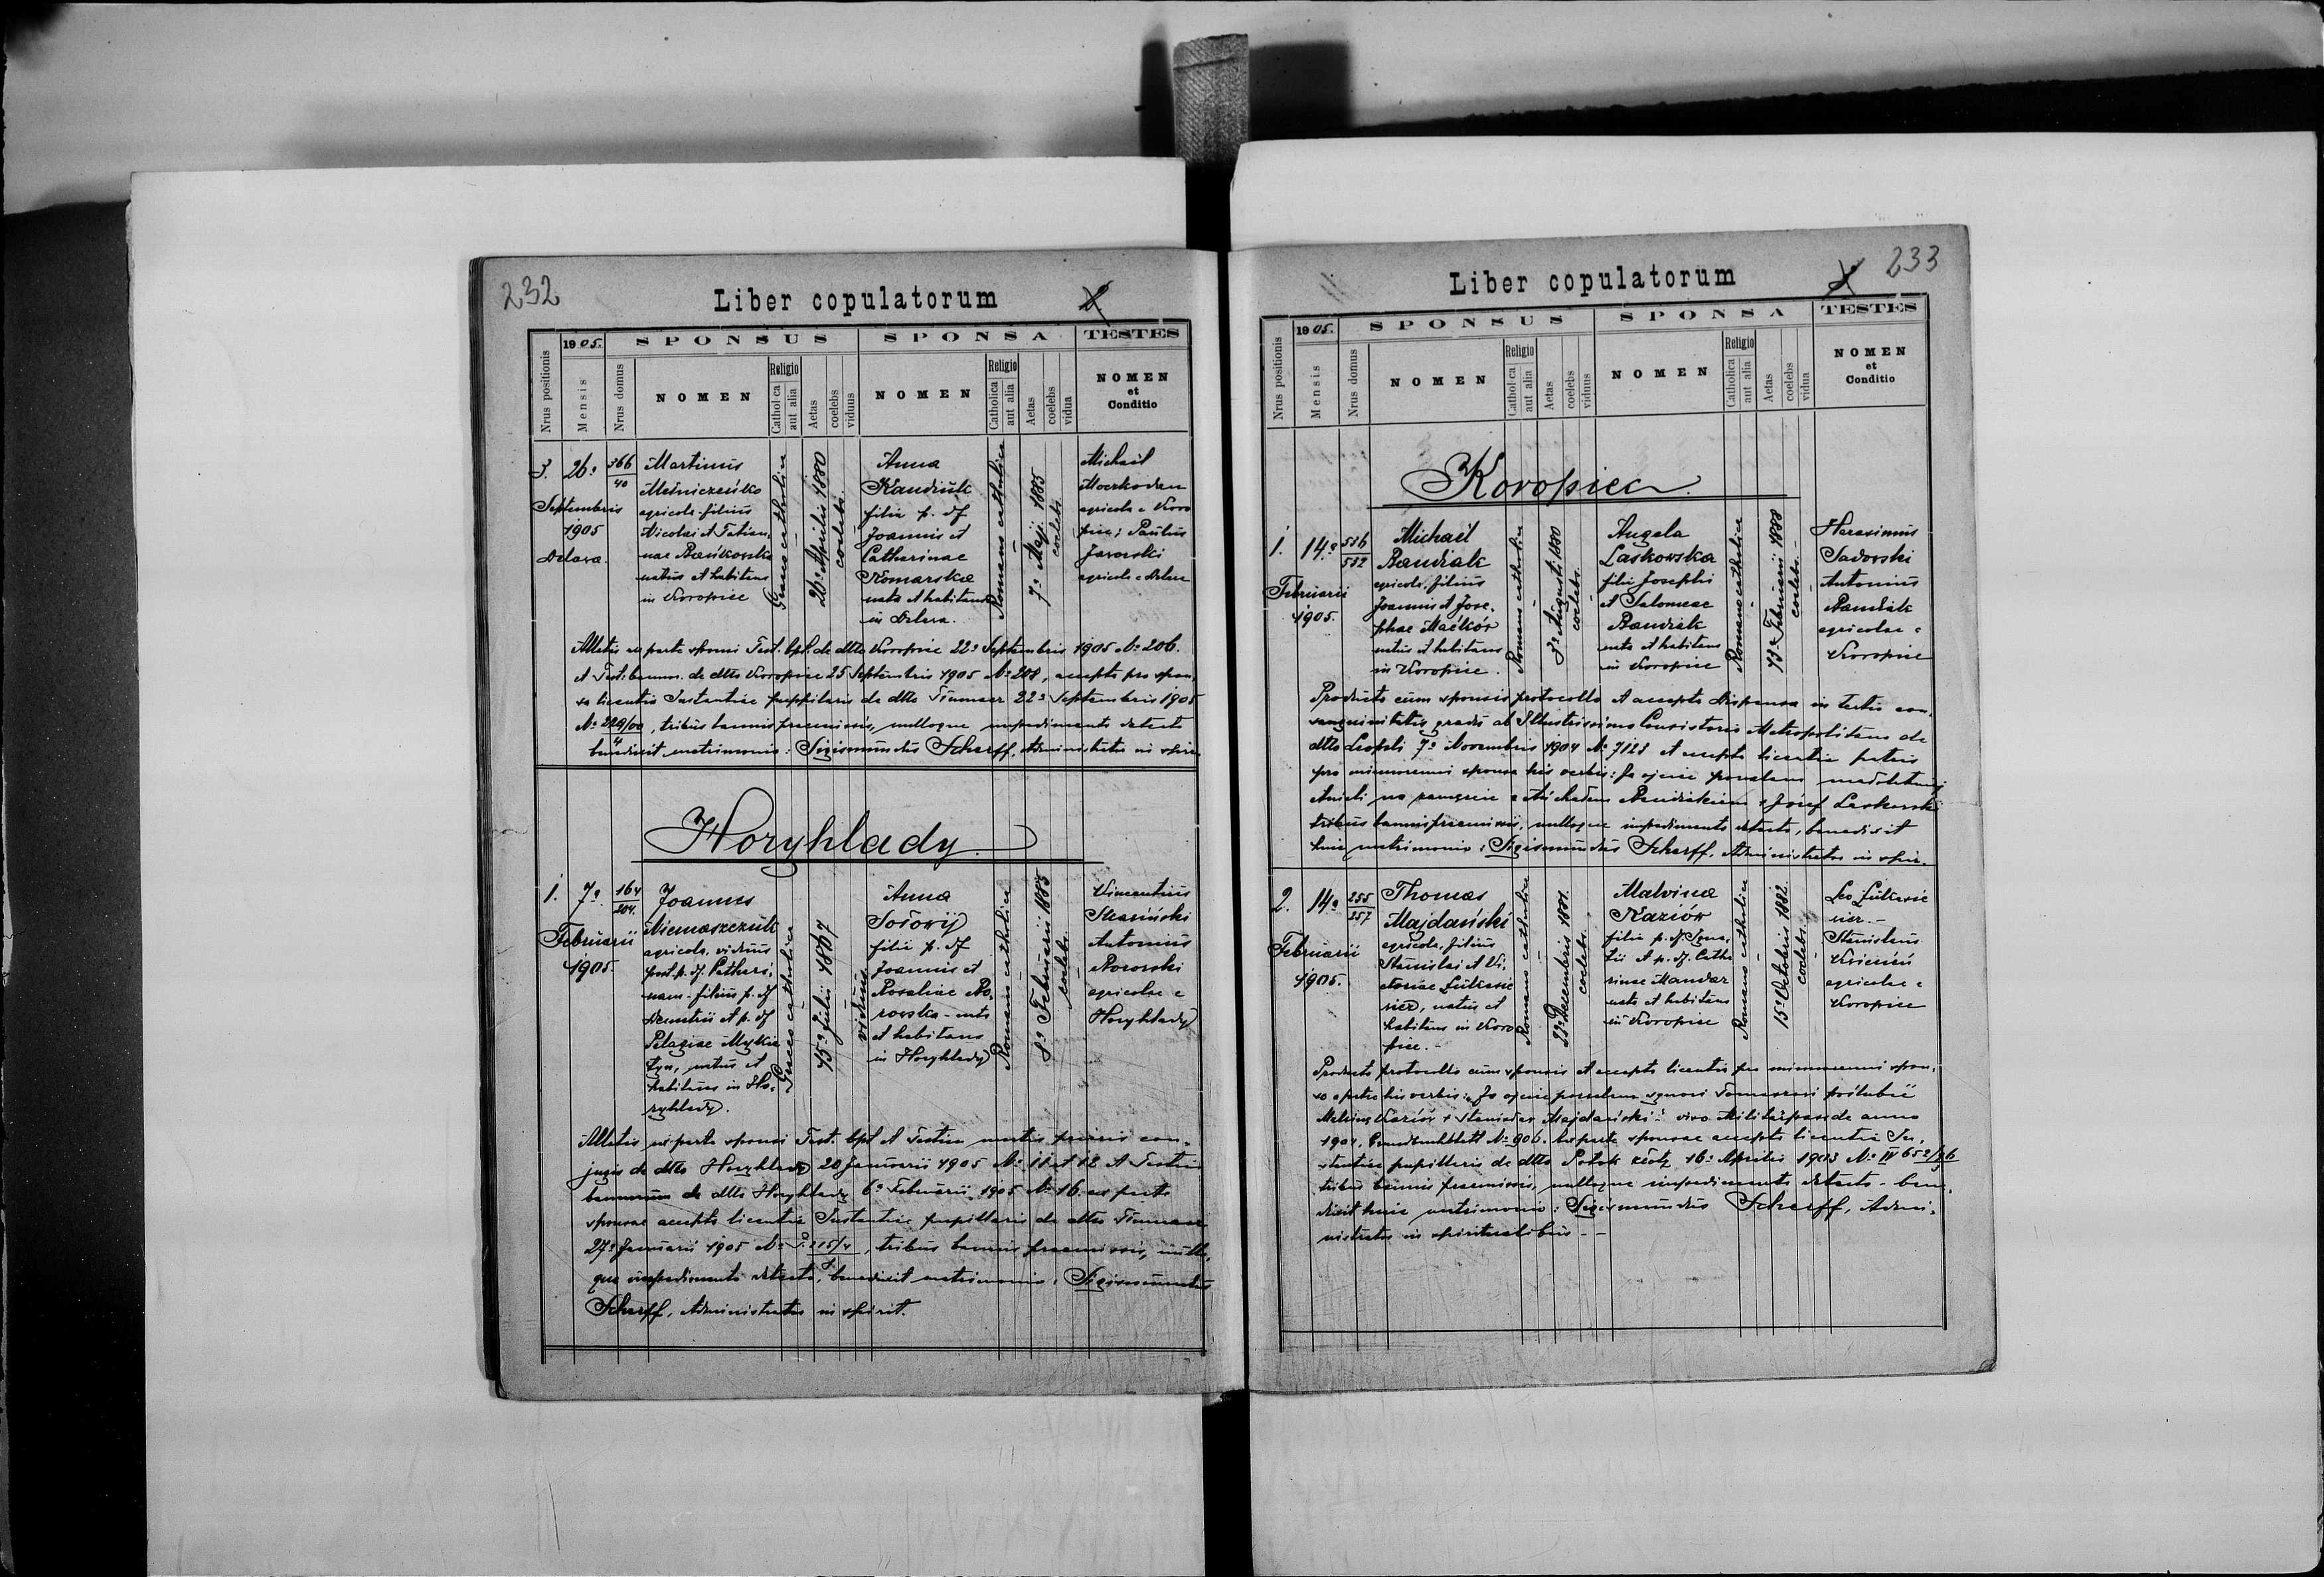 232
Liber copulatorum
1905.
SPONSUS
SPONSA
TESTES
Nrus positionis
Mensis
Nrus domus
NOMEN
Religio
Catholica
aut alia
Aetas
coelebs
viduus
NOMEN
Religio
Catholica
aut alia
Aetas
coelebs
vidua
NOMEN
et
Conditio
3.
26a
Septembris
1905
Delawa.
366
40
Martinus
Melniczeńko
agricola filius
Nicolai et Tatian,
nae
natus et habitans
in Koropice
Graeco catholica
26a Aprilis 1880
coelebs.
Anna
Kandiuk
filia p. df
Joannis et
Catharinae
Komarska
nata et habitans
in Delawa.
Romano catholica
7a Maji 1885
coelebs.
Michael
agricola e Koro
pice; Paulus
Jaworski
agricola e Delawa
Allatis ex parte sponsi Test. bpt. de dtto Koropice 22a Septembris 1905 No 206.
et Test. bannor. de dtto Koropice 25 Septembris 1905 No 208, accepta pro spon,
sa licentia Instantiae puppilaris de dtto Tłumacz 22a Septembris 1905
No 229/00, tribus bannis praemissis, nulloque impedimento detecto
4
benedixit matrimonio: Sigismundus Scharff, Administrator in spir.
Horyhlady
1.
7a
Februarii
1905.
164
204.
Joannes
Niemaszczuk
agricola, viduus
post p. df. Cathari,
nam - filius p. df
Demetrii et p. df
Pelagiae Mykie
tyn, natus et
habitans in Ho,
ryhlady.
Graeco catholica
15a Julii 1867
viduus.
Anna
filia p. df
Joannis et
Rosaliae
- nata
et habitans
in Horyhlady
Romano catholica
8a Februarii 1885
coelebs.
Vincentius
Antonius
agricolae e
Horyhlady
Allatis ex parte sponsi Test. bpt et Testim mortis prioris con,
jugis de dtto Horyhlady 20 Januarii 1905 No 11 et 12 et Testim
bannorum de dtto Horyhlady 6a Februarii 1905 No 16. ex parte
sponsae accepta licentia Instantiae pupillaris de dtto Tłumacz
27a Januarii 1905 No P. 215/4, tribus bannis praemissis, nullo,
que impedimento detecto, benedixit matrimonio: Sigismundus
Scharff, Administrator in spirit.
233
Liber copulatorum
1905.
SPONSUS
SPONSA
TESTES
Nrus positionis
Mensis
Nrus domus
NOMEN
Religio
Catholica
aut alia
Aetas
coelebs
viduus
NOMEN
Religio
Catholica
aut alia
Aetas
coelebs
vidua
NOMEN
et
Conditio
Koropiec.
1.
14a
Februarii
1905.
516
552
Michael
Bandiak
agricola, filius
Joannis et Jose,
phae Maćków
natus et habitans
in Koropice.
Romano catholica
8a Augusti 1880
coelebs.
Angela
Laskowska
filia Josephi
et Salomeae
Bandiak
nata et habitans
in Koropice
Romano catholica
13a Februarii 1888
coelebs.
Herasimus
Sadowski
Antonius
Bandiak
agricolae e
Koropice
Producto cum sponsis protocollo et accepta dispensa in tertio con,
sanguinitatis gradu ab Illustrissimo Consistorio Metropolitano de
dtto Leopoli 7a Novembris 1904 No 7123 et accepta licentia patris
pro minorenni sponsa his verbis: Ja ojciec pozwalam małoletniej
Anieli na zamęscie z Michałem Bandiakiem + Józef Laskowski
tribus bannis praemissis, nulloque impedimento detecto, benedixit
huic matrimonio: Sigismundus Scharff, Administrator in spir.
2.
14a
Februarii
1905.
255
357
Thomas
Majdański
agricola, filius
Stanislai et Vi,
ctoriae Łukasie
wicz, natus et
habitans in Koro
pice.
Romano catholica
22a Decembris 1881.
coelebs.
Malvina
Kaziów
filia p. df. Igna,
tii et p. df. Catha
rinae Mandar
nata et habitans
in Koropice
Romano catholica
15a Octobris 1882.
coelebs.
Leo Łukasie
wicz. -
Stanislaus
agricolae e
Koropice
Producto protocollo cum sponsis et accepta licentia pro minorenni spon,
so a patre his verbis: Ja ojciec pozwalam synowi Tomaszowi poślubić
Malwinę Kaziów + Stanisław Majdański: viso Militärpass de anno
1904, Grundbuchblatt No 906. ex parte sponsae accepta licentia In,
stantiae pupillaris de dtto Potok złoty 16a Aprilis 1903 No IV 652/96
3
tribus bannis praemissis, nulloque impedimento detecto - bene,
dixit huic matrimonio: Sigismundus Scharff, Admi,
nistrator in spiritualibus - -